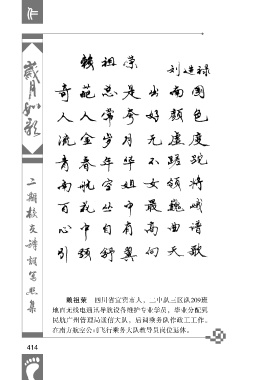 赖祖荣
刘建禄
奇葩总是出南国
人人常夸好颜色
流金岁月无虚度
青春年华不蹉跎
南航空姐女领将
百花丛中最巍峨
心中自有高曲谱
引颈舒翼向天歌
赖祖荣 四川省宜宾市人。二中队三区队209班
地面无线电通讯导航设备维护专业学员，毕业分配到
民航广州管理局通信大队，后调乘务队作政工工作。
在南方航空公司飞行乘务大队教导员岗位退休。
歲月如歌
二期校友诗词写照集
414